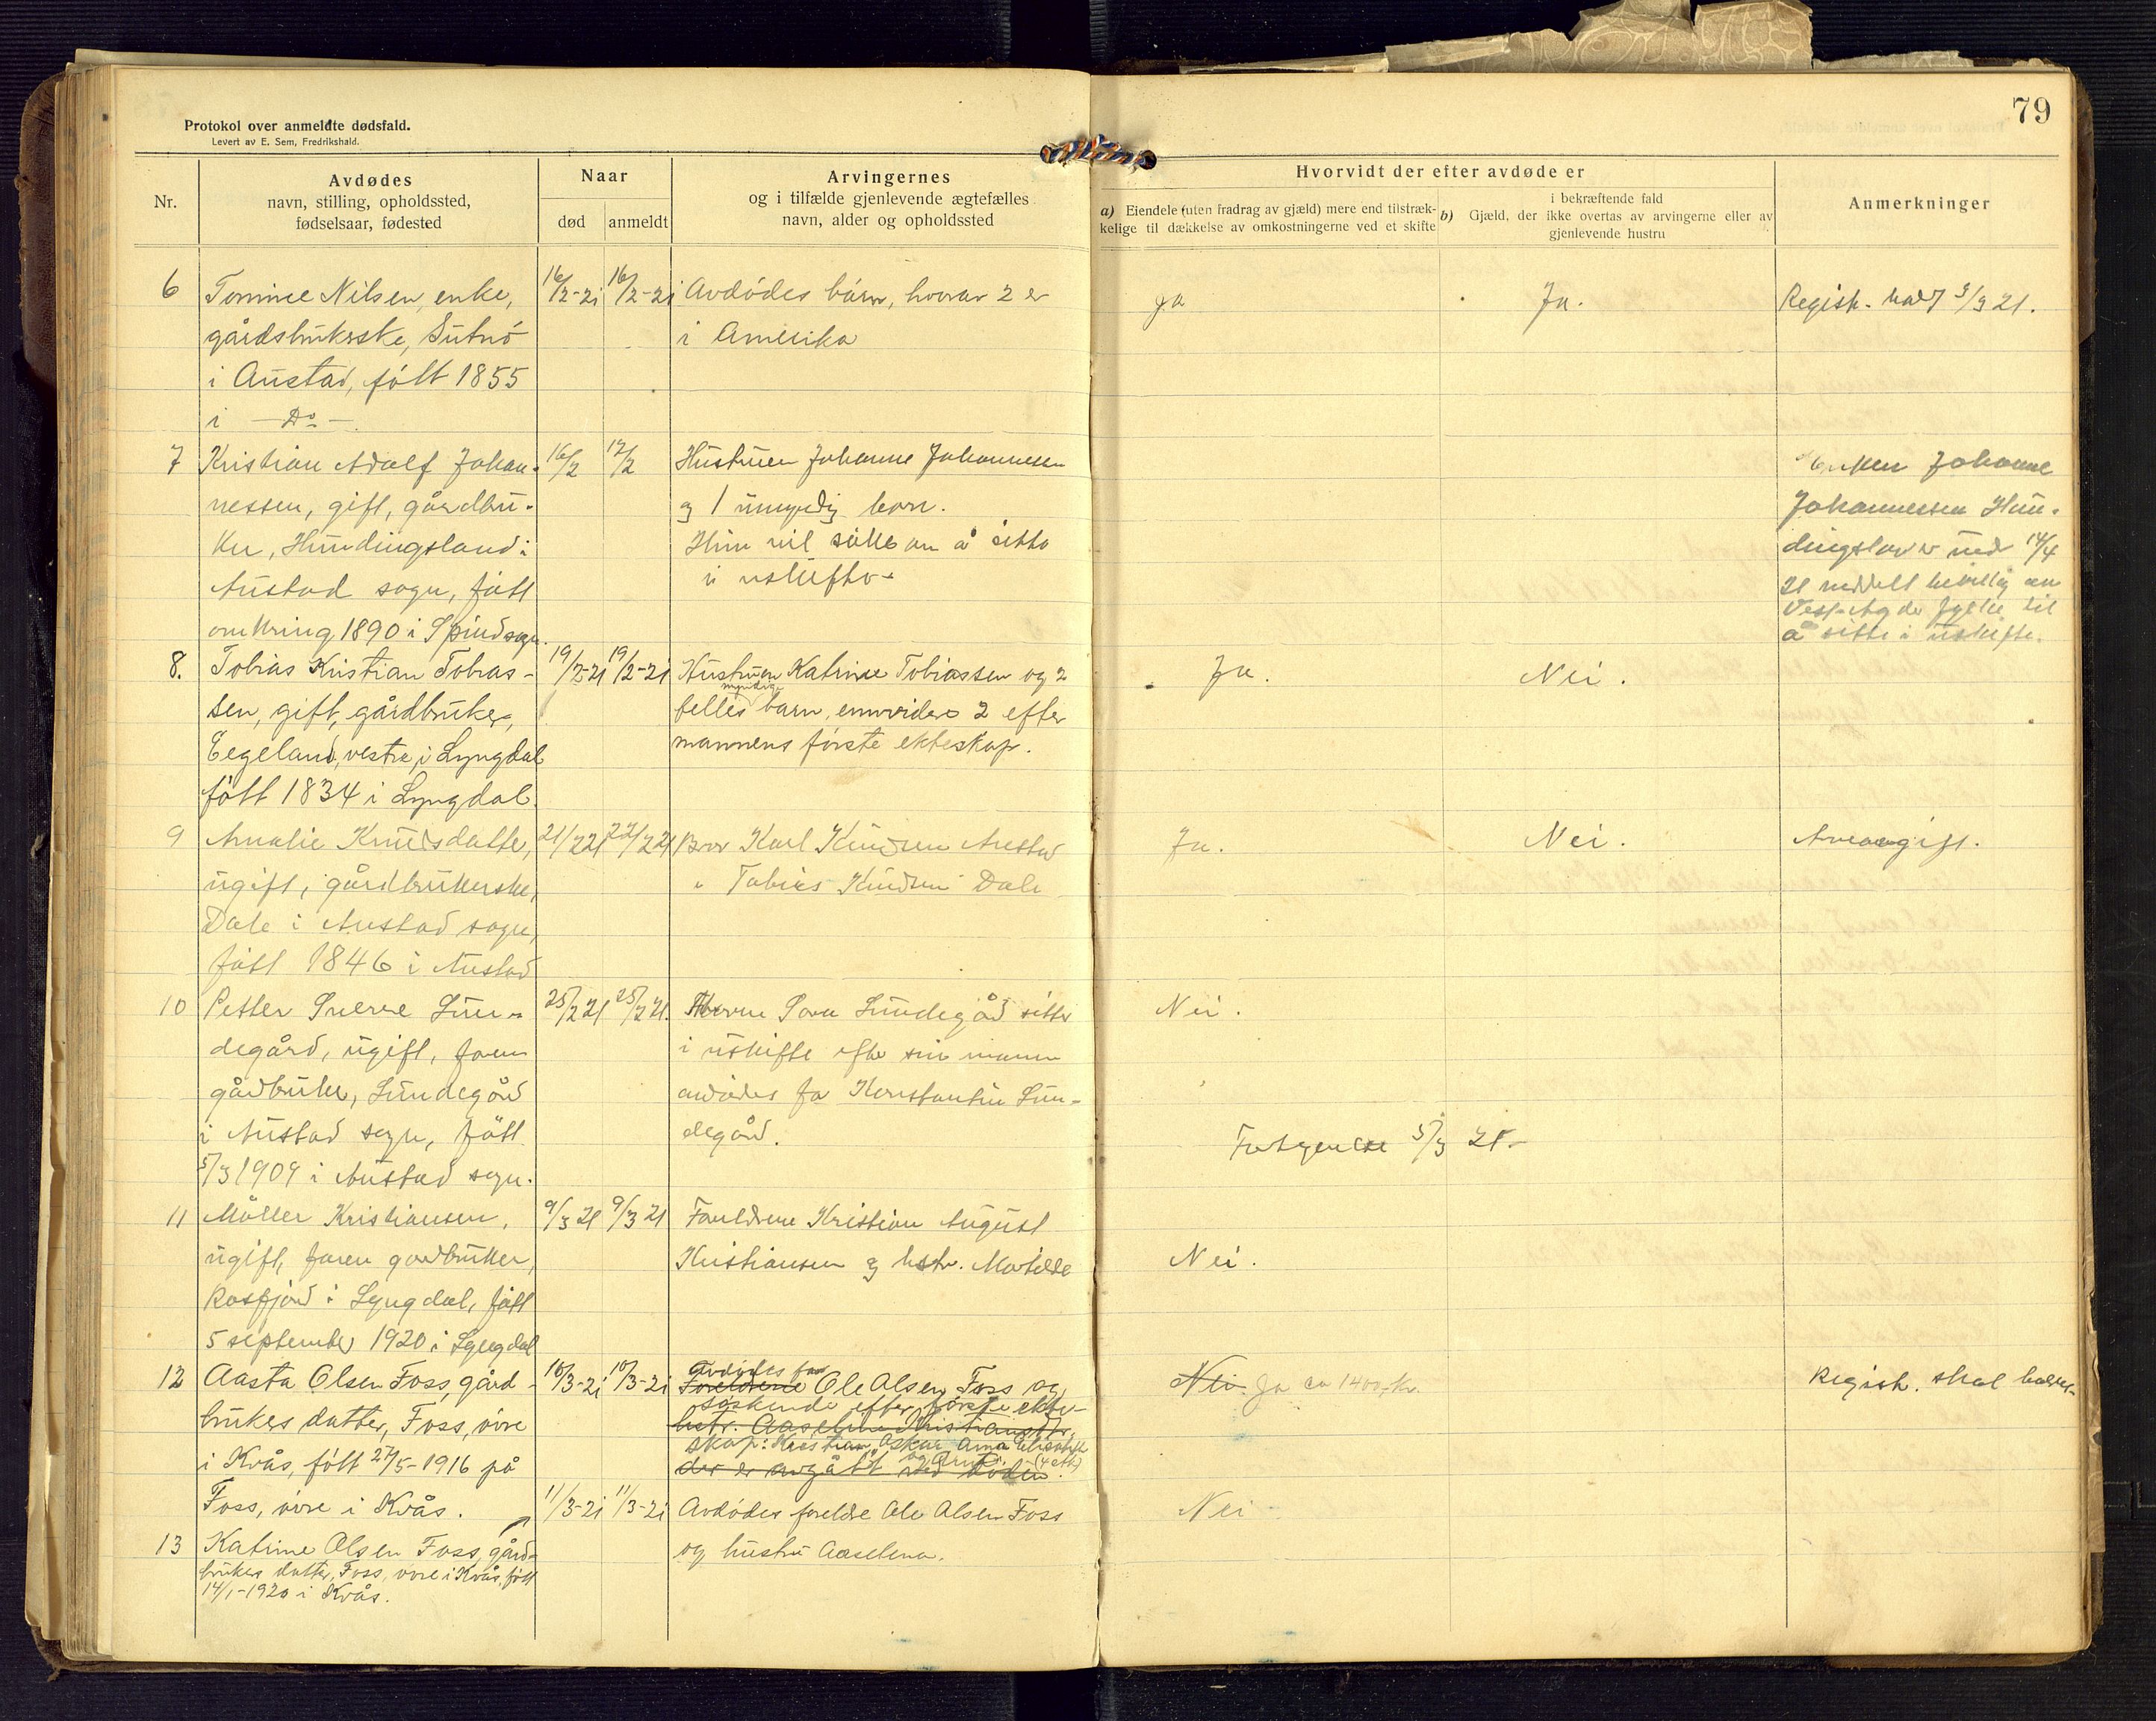 79
Protokol over anmeldte dødsfald.
Levert av E. Sem, Fredrikshald.
Nr.
Avdødes
navn, stilling, opholdssted,
fødselsaar, fødested
Naar
død
anmeldt
Arvingernes
og i tilfælde gjenlevende ægtefælles
navn, alder og opholdssted
Hvorvidt der efter avdøde er
a) Eiendele (uten fradrag av gjæld) mere end tilstræk-
kelige til dækkelse av omkostningerne ved et skifte
i bekræftende fald
b) Gjæld, der ikke overtas av arvingerne eller av
gjenlevende hustru
Anmerkninger
6
Tomine Nilsen, enke,
gårdsbrukerske,
i Austad, født 1855
i — Do —.
16/2-21
16/2-21
Avdödes bárn, hvorav 2 er
i Amerika
Ja
Ja.
Regist. 3/3 21.
7
Kristian Adolf Johan-
nessen, gift, gårdbru-
ker, Hundingsland i
Austad sogn, født
omkring 1890 i Spind sogn.
16/2
17/2
Hustruen Johanne Johannessen
og 1 umyndig barn.
Hun vil söke om å sitte
i uskifte.
Enken Johanne
Johannessen Hun-
dingsland er under 14/4
21 meddelt bevilling av
Vest-Agder fylke til
å sitte i uskifte.
8.
Tobias Kristian Tobias-
sen, gift, gårdbruker,
Egeland, vestre, i Lyngdal
født 1834 i Lyngdal.
19/2-21
19/2-21
Hustruen Katrine Tobiassen og 2
myndige
felles barn, emvidere 2 efter
mannens förste ekteskap.
Ja.
Nei.
9
Amalie Knudsdatter,
ugift, gårdbrukerske,
Dale i Austad sogn,
født 1846 i Austad
21/2 21
22/2 21
Bror Karl Knudsen Austad
" Tobias Knudsen Dale
Ja.
Nei.
Arveavgift.
10
Petter Sverre Lun-
degård, ugift, faren
gårdbruker, Lundegård
i Austad sogn, född
5/3 1909 i Austad sogn.
25/2 21
25/2 21.
Lundegård sitter
i uskifte efter sin mann
avdødes far Konstantin Lun-
degård.
Nei.
5/3 21.-
11
Möller Kristiansen,
ugift, faren gardbruker,
Rosfjord i Lyngdal, född
5 september 1920 i Lyngdal
9/3 21
9/3 21
Foreldrene Kristian August
Kristiansen og hstr. Matilde
Nei.
12
Aasta Olsen Foss, gård-
brukers datter, Foss, övre
i Kvås, född 27/5-1916 på
Foss, övre i Kvås.
10/3-21
10/3-21
Avdödes far
Foreldrene Ole Olsen Foss og
söskende efter förste ekte-
hstr. Aaselene Kristiansdtr.
skap: Kristian, Oskar Anna Elisabeth
og Arnt. (4 stk)
der er avgått ved döden.
Nei. Ja ca 1400 Kr.
Regist. skal holdes.
13
Katrine Olsen Foss, gård-
brukers datter, Foss, övre i Kvås, född
14/1-1920 i Kvås.
11/3-21
11/3-21
Avdödes foreldre Ole Olsen Foss
og hustru Aaselena.
Nei